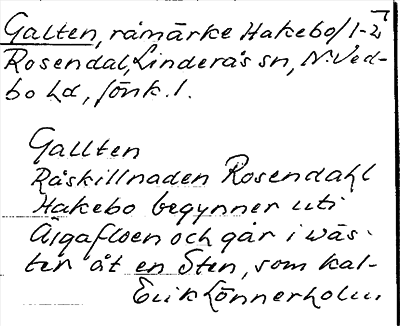 Galten, råmärke Hakebo/1-2
Rosendal, Linderås sn, N. Ved-
bo hd, Jönk. l.
Gallten
Råskillnaden Rosendahl
Hakebo begynner uti
Älgafloen och går i wäs-
ter åt en Sten, som kal-
Erik Lönnerholm.